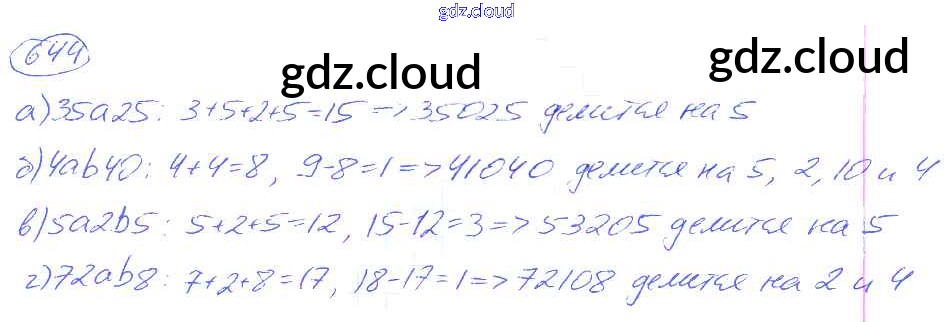 gdz.cloud
644
gdz.cloud
gdz.cloud
а) 35a25: 3+5+2+5=15 => 35025 делится на 5
б) 4ab40: 4+4=8, 9-8=1 => 41040 делится на 5, 2, 10 и 4
в) 5a2b5: 5+2+5=12, 15-12=3 => 53205 делится на 5
г) 72ab8: 7+2+8=17, 18-17=1 => 72108 делится на 2 и 4